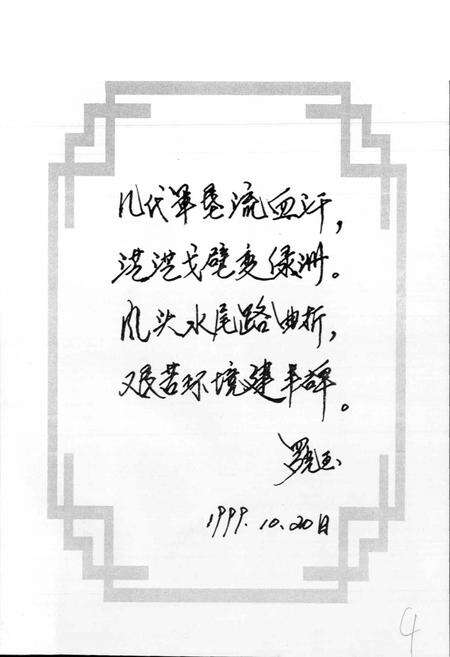 几代军垦流血汗，
茫茫戈壁变绿洲。
风头水尾路曲折，
艰苦环境建丰碑。
1999.10.20日
4